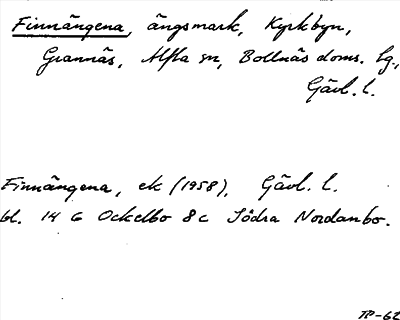 Finnängena, ängsmark, Kyrkbyn,
Grannäs, Alfta sn, Bollnäs doms. tg.,
Gävl. l.
Finnängena, ek (1958), Gävl. l.
bl. 14 G Ockelbo 8 c Södra Nordanbo.
TP-62